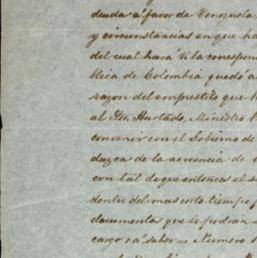 deuda á favor de Venezuela,
y circunstancias en que ha
del cual hará V. la correspon
blica de Colombia quedó a
razon del emprestito que h
al Sor. Hurtado, Ministro
convenir con el Gobierno de
duzca de la acrencia de
con tal de que entonces el s
dentro del mas corto tiempo p
documentos que se podrán
cargo, á saber = Numero